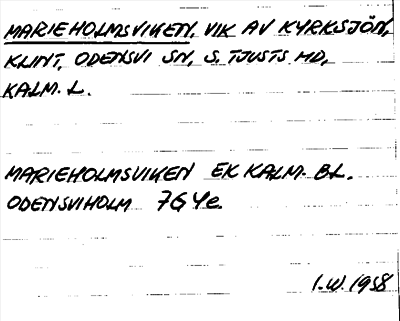 MARIEHOLMSVIKEN, VIK AV KYRKSJÖN,
KLINT, ODENSVI SN, S. TJUSTS HD,
KALM. L.
MARIEHOLMSVIKEN EK KALM. BL.
ODENSVIHOLM 7G4e
I.W. 1958